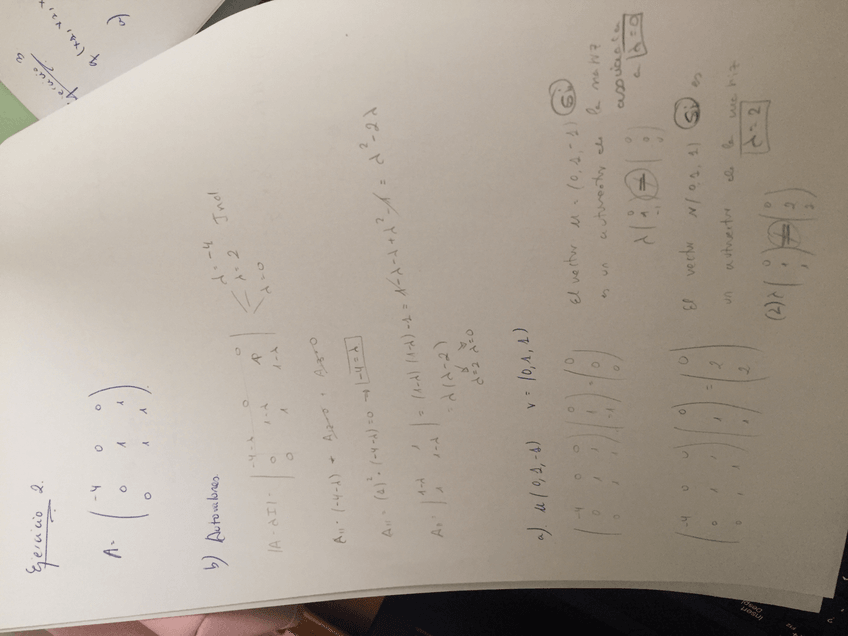 Ejercicio 2.
A = ( -4 0 0
0 1 1
0 1 1 )
b) Autovalores
|A - λI| = | -4-λ 0 0
0 1-λ 1
0 1 1-λ |
λ = -4
λ = 2
λ = 0
A₁₁ = (1)² · (-4-λ) = 0 → -4 = λ
| 1-λ 1
1 1-λ | = (1-λ) (1-λ) - 1 = 1 - λ - λ + λ² - 1 = λ² - 2λ
= λ (λ-2)
λ=2 λ=0
a) u (0, 1, -1) v = (0, 1, 1)
( -4 0 0
0 1 1
0 1 1 ) ( 0
1
-1 ) = ( 0
0
0 )
El vector u = (0, 1, -1) Si
es un autovector de la matriz
asociado a
a λ = 0
λ ( 0
1
-1 ) = ( 0
0
0 )
( -4 0 0
0 1 1
0 1 1 ) ( 0
1
1 ) = ( 0
2
2 )
El vector v (0, 1, 1) Si es
un autovector de la matriz
λ = 2
(2) λ ( 0
1
1 ) = ( 0
2
2 )